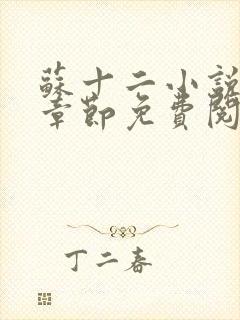 蘇十二小說
章節免費閱
丁二春